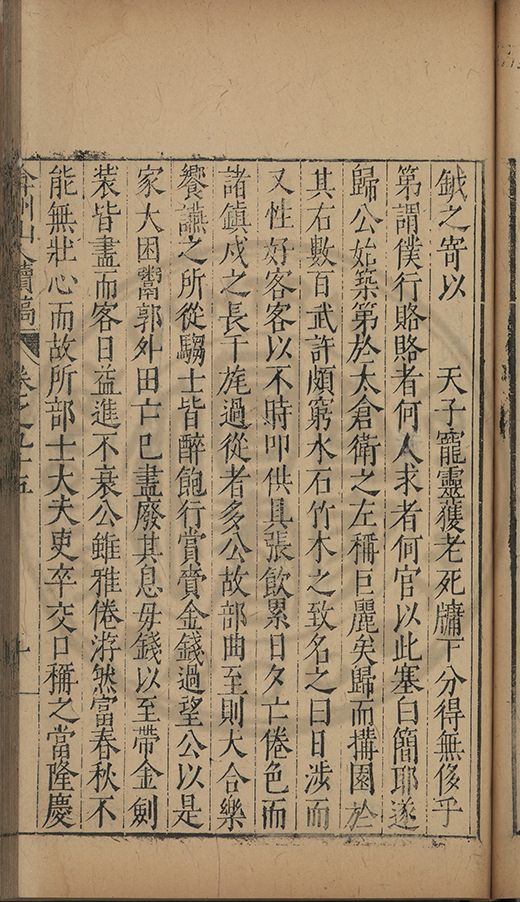 鉞之寄以　　天子寵靈獲老死牖下分得無侈乎
第謂僕行賂賂者何人求者何官以此塞白簡耶遂
歸公始築第於太倉衛之左稱巨麗矣歸而搆園於
其右數百武許頗窮水石竹木之致名之曰日涉而
又性好客客以不時叩供具張飲累日夕亡倦色而
諸鎮戍之長干旄過從者多公故部曲至則大合樂
饗讌之所從騶士皆醉飽行賞賚金錢過望公以是
家大困鬻郭外田亡已盡廢其息毋錢以至帶金劍
装皆盡而客日益進不衰公雖雅倦游然富春秋不
能無壯心而故所部士大夫吏卒交口稱之當隆慶
弇州山人續稿　卷之九十五　十